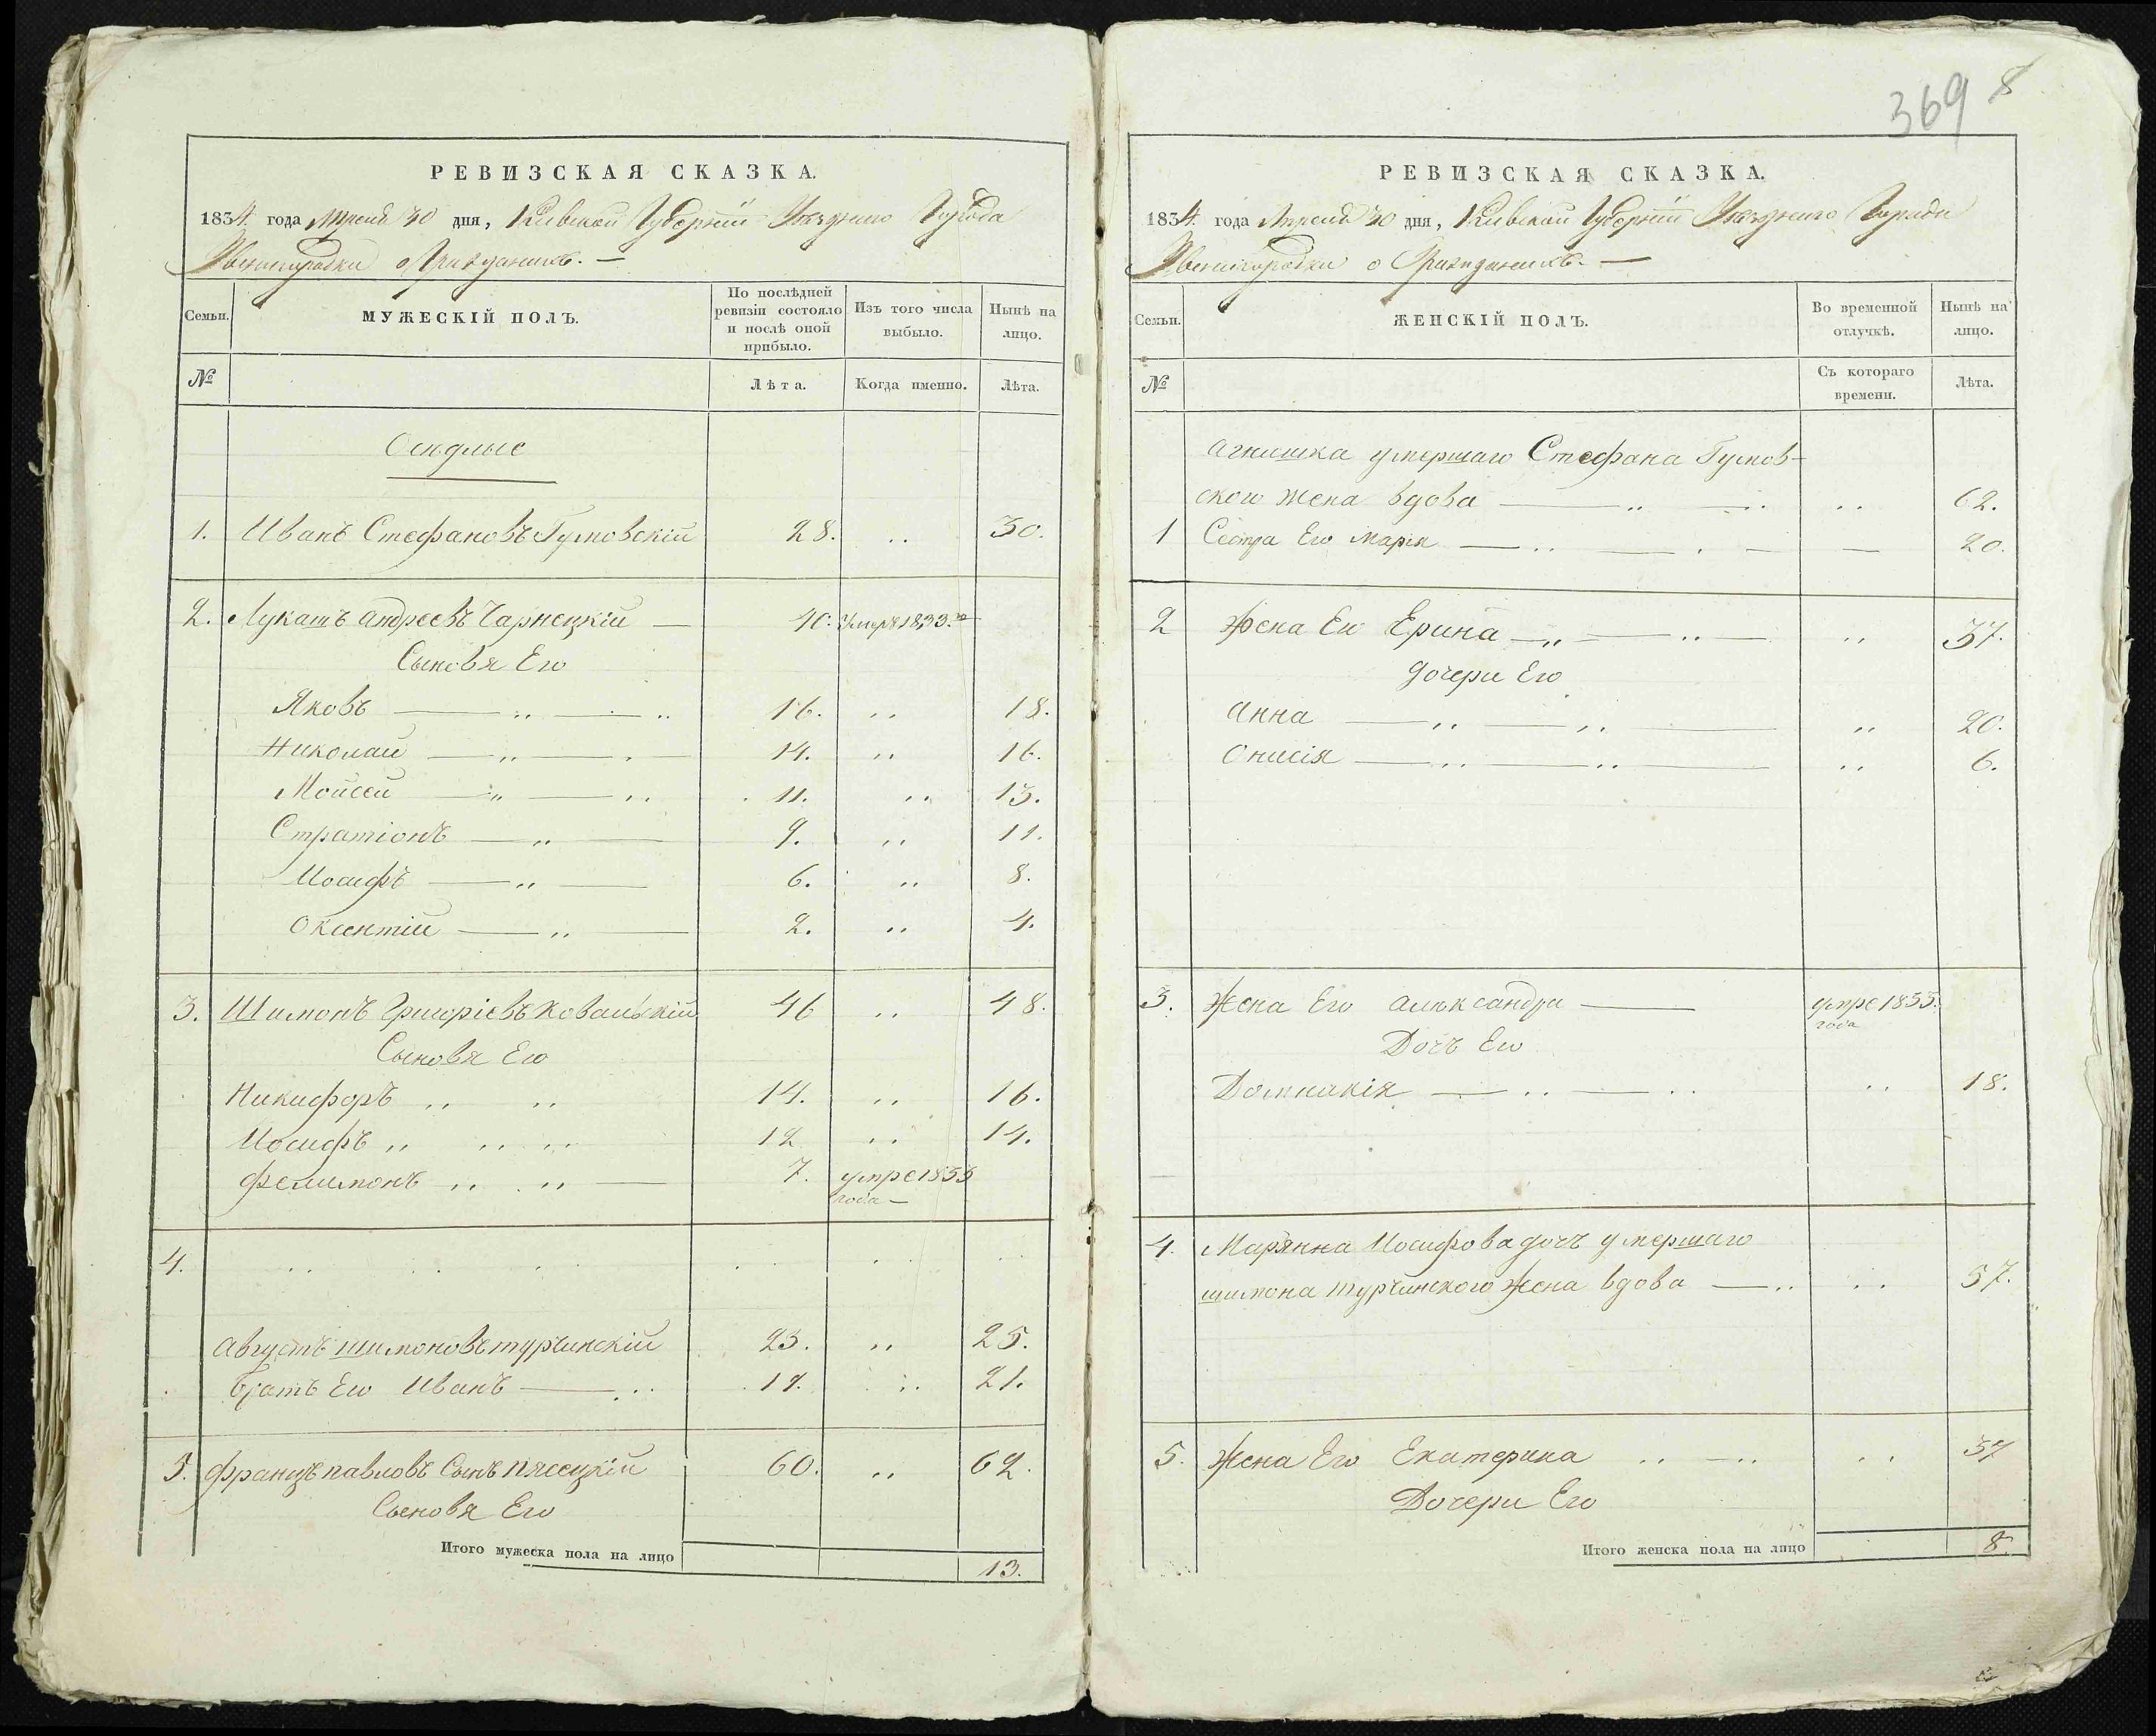 369 8
РЕВИЗСКАЯ СКАЗКА.
1834. года Апреля 30 дня, Киевской Губерніи Уѣзднаго Города
Звенигородки о Гражданахъ. —
Семьи.
МУЖЕСКІЙ ПОЛЪ.
По послѣдней ревизіи состояло и послѣ оной прибыло.
Изъ того числа выбыло.
Нынѣ на лицо.
№
Лѣта.
Когда именно.
Лѣта.
Осѣдлые
1. Иванъ Стефановъ Гумовскій 28. 30.
2. Лукашъ Андреевъ Чарнецкій — 40. Умеръ 1833.
Сыновя Его
Яковъ 16. 18.
Николай 14. 16.
Мойсей 11. 13.
Стратіонъ 9. 11.
Иосифъ 6. 8.
Оксентій 2. 4.
3. Шимонъ Григоріевъ Ковальскій 46 48.
Сыновя Его
Никифоръ 14. 16.
Иосифъ 12 14.
Фелимонъ 7. умре 1833
года —
4.
Августъ Шимоновъ Турчинскій 23. 25.
Братъ Его Иванъ 19. 21.
5. Францъ Павловъ Сынъ Пясецкій 60. 62.
Сыновя Его
Итого мужеска пола на лицо 13.
РЕВИЗСКАЯ СКАЗКА.
1834. года Апреля 30 дня, Киевской Губерніи Уѣзднаго Города
Звенигородки о Гражданахъ. —
Семьи.
ЖЕНСКІЙ ПОЛЪ.
Во временной отлучкѣ.
Нынѣ на лицо.
№
Съ котораго времени.
Лѣта.
Агнишка умершаго Стефана Гумов-
ского жена вдова 62.
1 Сестра Его Марія 20.
2 Жена Его Ерина 37.
Дочери Его
Анна 20.
Онисія 6.
3. Жена Его Александра умре 1833.
года
Дочъ Его
Домникія 18.
4. Марянна Иосифова дочъ умершаго
Шимона Турчинского жена вдова 57.
5. Жена Его Екатерина 37
Дочери Его
Итого женска пола на лицо 8.